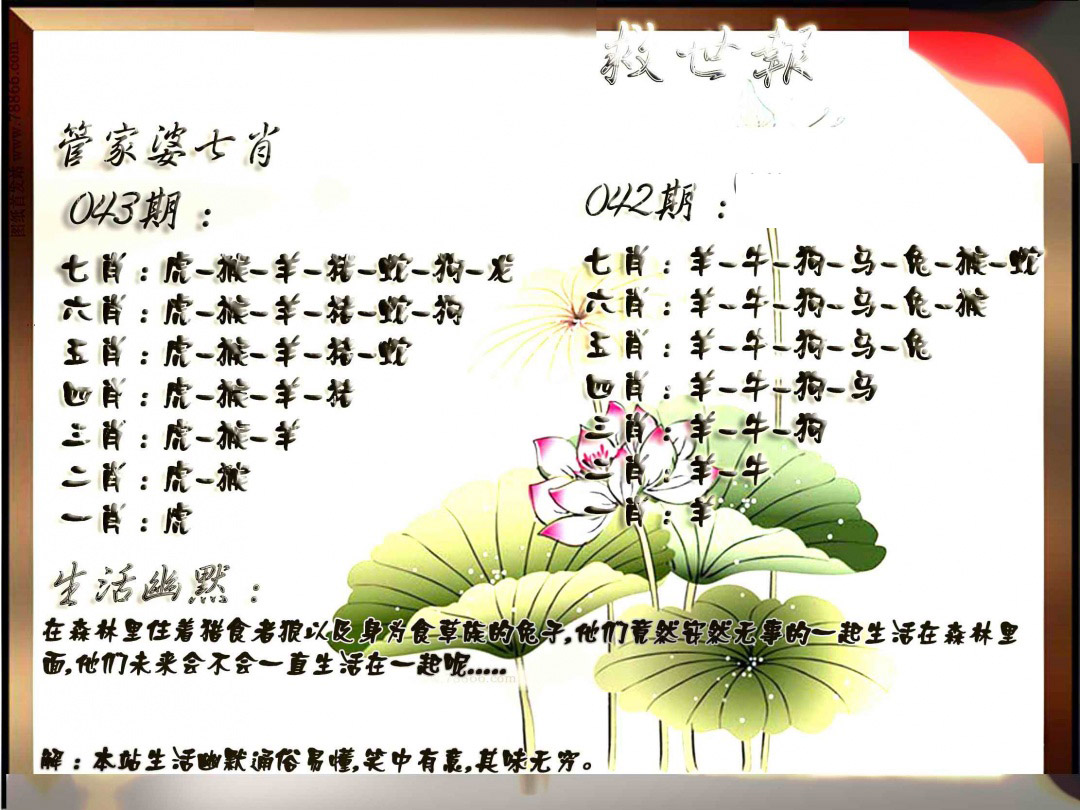 救世報
管家婆七肖
043期：
七肖：虎-猴-羊-猪-蛇-狗-龙
六肖：虎-猴-羊-猪-蛇-狗
五肖：虎-猴-羊-猪-蛇
四肖：虎-猴-羊-猪
三肖：虎-猴-羊
二肖：虎-猴
一肖：虎
042期：
七肖：羊-牛-狗-马-兔-猴-蛇
六肖：羊-牛-狗-马-兔-猴
五肖：羊-牛-狗-马-兔
四肖：羊-牛-狗-马
三肖：羊-牛-狗
二肖：羊-牛
一肖：羊
生活幽默：
在森林里住着猎食者狼以及身为食草族的兔子,他们竟然安然无事的一起生活在森林里
面,他们未来会不会一直生活在一起呢.....
解：本站生活幽默通俗易懂,笑中有意,其味无穷。
图纸首发站 www.78866.com